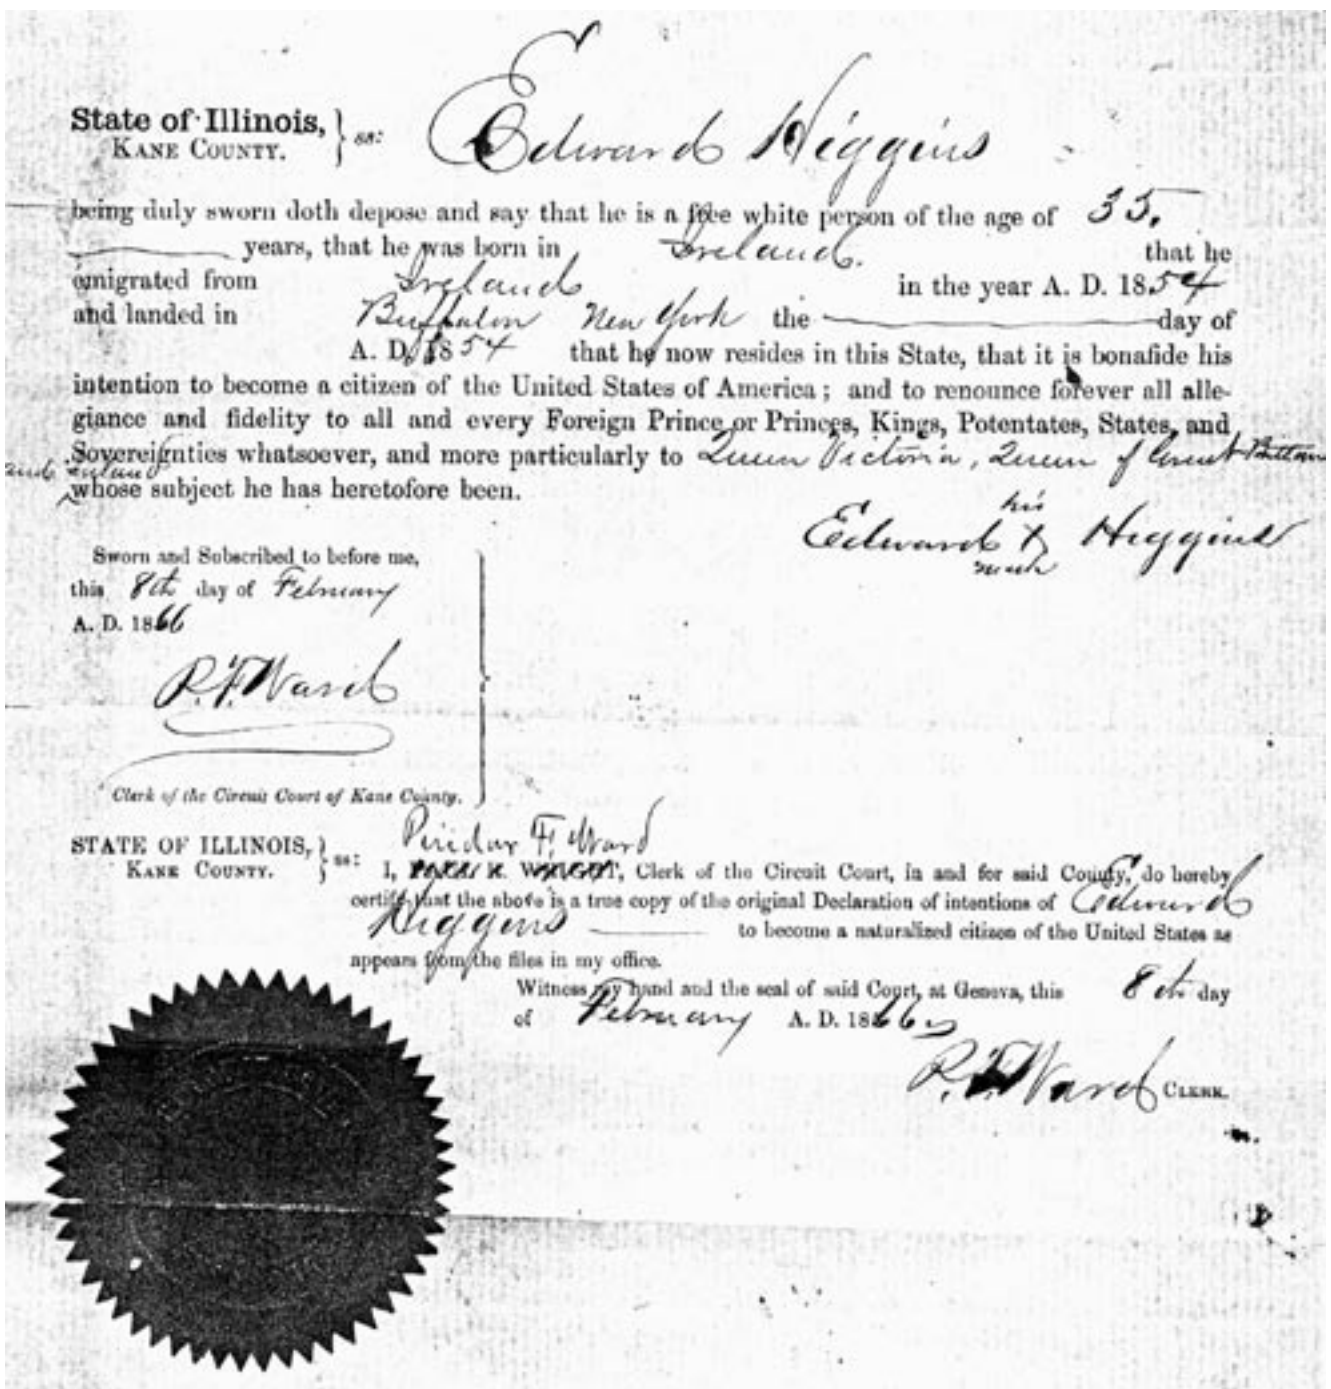 State of Illinois, } ss: Edward Higgins
KANE COUNTY.
being duly sworn doth depose and say that he is a free white person of the age of 35.
years, that he was born in Ireland. that he
emigrated from Ireland in the year A. D. 1854
and landed in Buffalon New York the day of
A. D. 1854 that he now resides in this State, that it is bonafide his
intention to become a citizen of the United States of America; and to renounce forever all alle-
giance and fidelity to all and every Foreign Prince or Princes, Kings, Potentates, States, and
Sovereignties whatsoever, and more particularly to Queen Victoria, Queen of Great Brittan
and
whose subject he has heretofore been.
his
Edward X Higgins
mark
Sworn and Subscribed to before me,
this 8th day of February
A. D. 1866
R. F. Ward
Clerk of the Circuit Court of Kane County.
STATE OF ILLINOIS, } ss: F. Ward
KANE COUNTY. I, WRIGHT, Clerk of the Circuit Court, in and for said County, do hereby
certify that the above is a true copy of the original Declaration of intentions of Edward
Higgins to become a naturalized citizen of the United States as
appears from the files in my office.
Witness my hand and the seal of said Court, at Geneva, this 8th day
of February A. D. 1866
R. F. Ward CLERK.